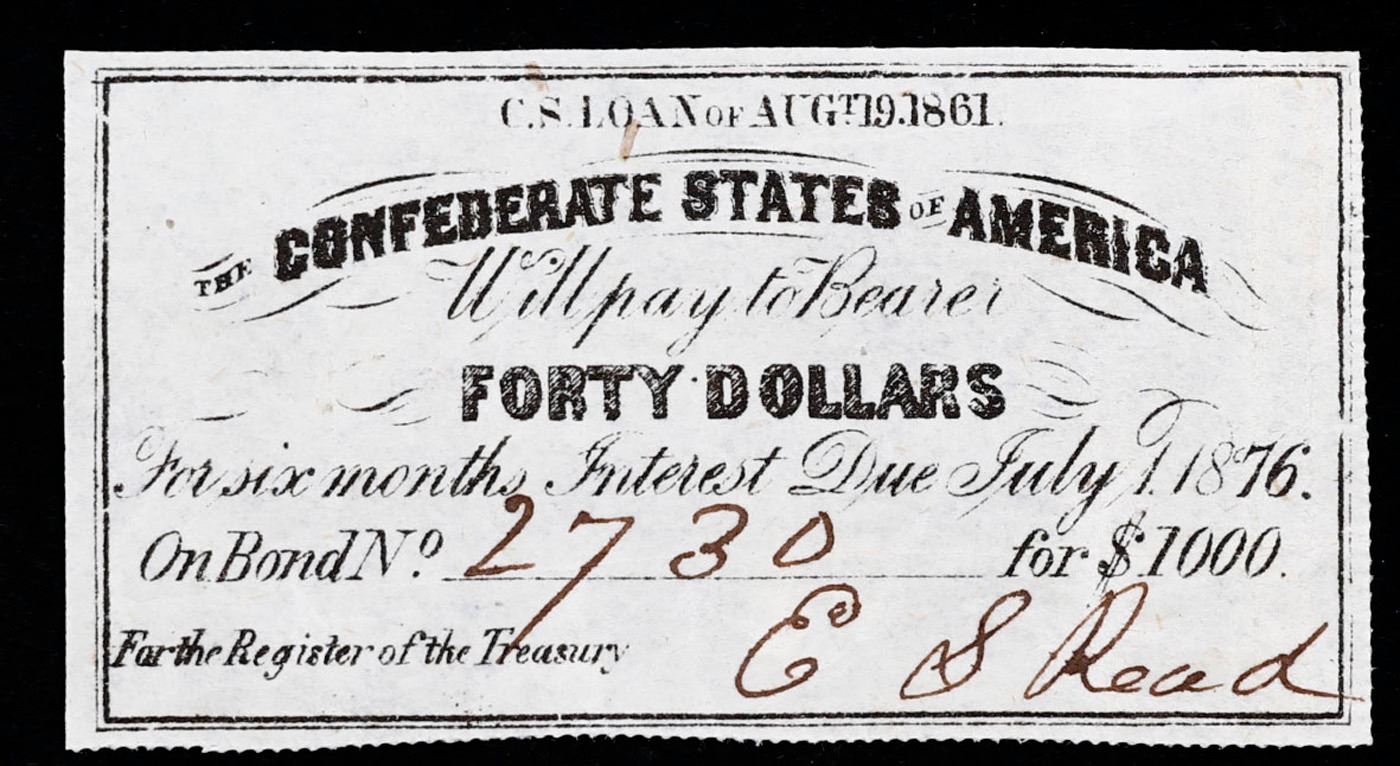 C.S. LOAN OF AUGT. 19. 1861.
THE CONFEDERATE STATES OF AMERICA
Will pay to Bearer
FORTY DOLLARS
For six months Interest Due July 1. 1876.
On Bond No. 2730 for $1000.
For the Register of the Treasury E S Read